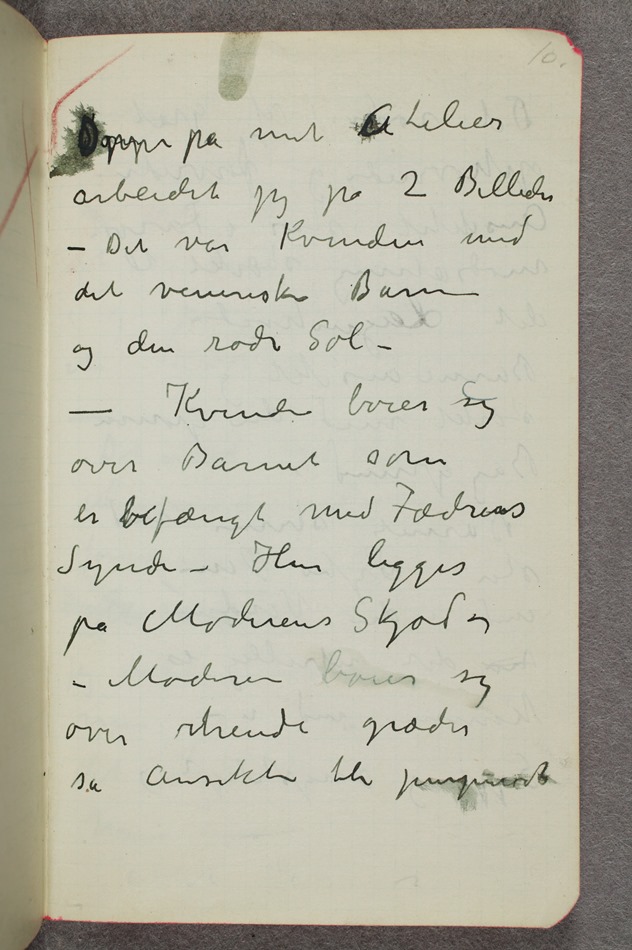 10.
Oppe på mit Atelier
arbeidet jeg på 2 Billeder
– Det var Kvinden med
det veneriske Barn
og den rode Sol –
— Kvinden boier sig
over Barnet som
er befængt med Fædrenes
Synde – Hun ligger
på Moderens Skjød og
– Moderen boier sig
over græder
så Ansiktet blir purpurrødt